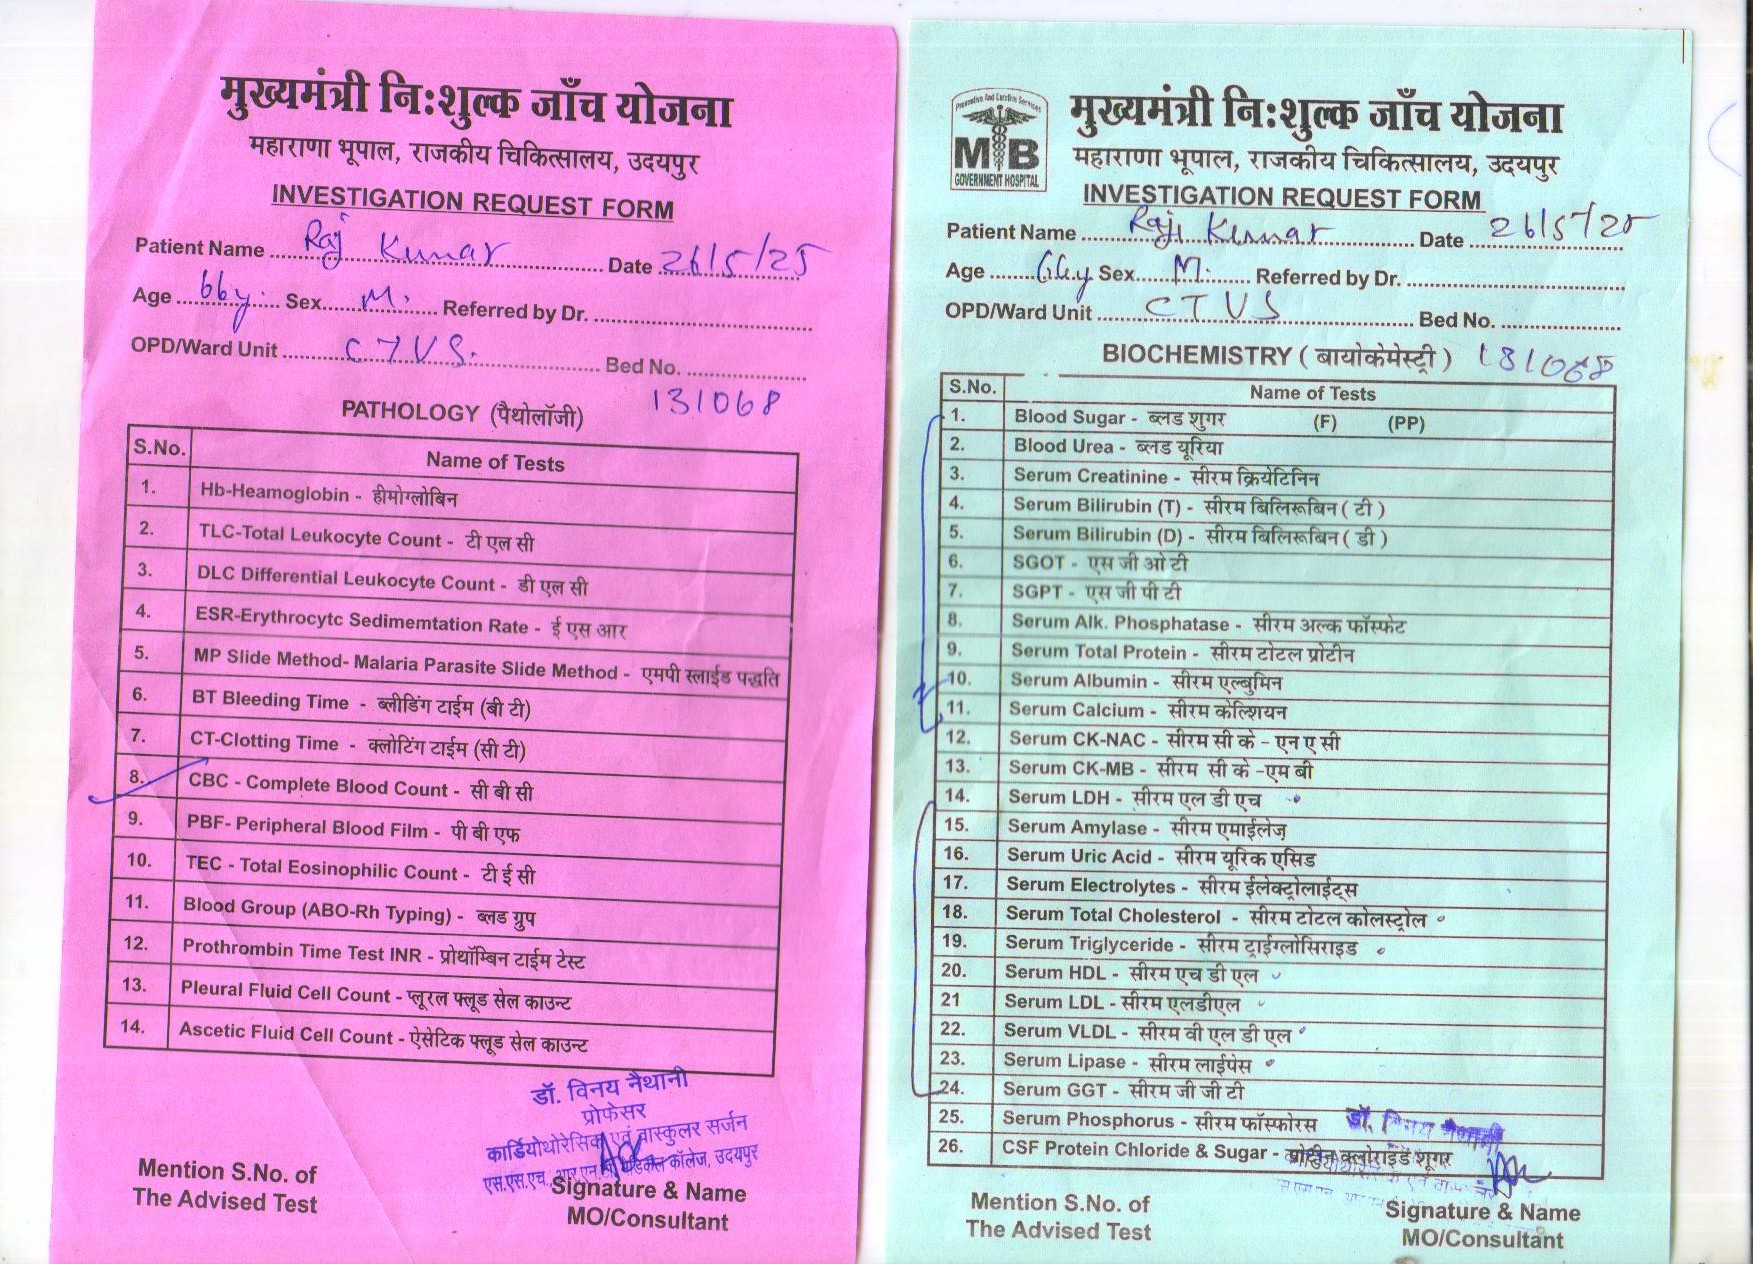 मुख्यमंत्री नि:शुल्क जाँच योजना
महाराणा भूपाल, राजकीय चिकित्सालय, उदयपुर
INVESTIGATION REQUEST FORM
Patient Name Raj Kumar Date 26/5/25
Age 66y. Sex M. Referred by Dr.
OPD/Ward Unit CTVS. Bed No.
PATHOLOGY (पैथोलॉजी) 131068
S.No. Name of Tests
1. Hb-Heamoglobin - हीमोग्लोबिन
2. TLC-Total Leukocyte Count - टी एल सी
3. DLC Differential Leukocyte Count - डी एल सी
4. ESR-Erythrocytc Sedimemtation Rate - ई एस आर
5. MP Slide Method- Malaria Parasite Slide Method - एमपी स्लाईड पद्धति
6. BT Bleeding Time - ब्लीडिंग टाईम (बी टी)
7. CT-Clotting Time - क्लोटिंग टाईम (सी टी)
8. CBC - Complete Blood Count - सी बी सी
9. PBF- Peripheral Blood Film - पी बी एफ
10. TEC - Total Eosinophilic Count - टी ई सी
11. Blood Group (ABO-Rh Typing) - ब्लड ग्रुप
12. Prothrombin Time Test INR - प्रोथॉम्बिन टाईम टेस्ट
13. Pleural Fluid Cell Count - प्लूरल फ्लूड सेल काउन्ट
14. Ascetic Fluid Cell Count - ऐसेटिक फ्लूड सेल काउन्ट
डॉ. विनय नैथानी
प्रोफेसर
कार्डियोथोरेसिक एवं वास्कुलर सर्जन
एस.एस.एच., आर.एन.टी. मेडिकल कॉलेज, उदयपुर
Mention S.No. of
The Advised Test
Signature & Name
MO/Consultant
Preventive And Curative Services
MB
GOVERNMENT HOSPITAL
मुख्यमंत्री नि:शुल्क जाँच योजना
महाराणा भूपाल, राजकीय चिकित्सालय, उदयपुर
INVESTIGATION REQUEST FORM
Patient Name Raj Kumar Date 26/5/25
Age 66y Sex M. Referred by Dr.
OPD/Ward Unit CTVS Bed No.
BIOCHEMISTRY ( बायोकेमेस्ट्री ) 131068
S.No. Name of Tests
1. Blood Sugar - ब्लड शुगर (F) (PP)
2. Blood Urea - ब्लड यूरिया
3. Serum Creatinine - सीरम क्रियेटिनिन
4. Serum Bilirubin (T) - सीरम बिलिरूबिन ( टी )
5. Serum Bilirubin (D) - सीरम बिलिरूबिन ( डी )
6. SGOT - एस जी ओ टी
7. SGPT - एस जी पी टी
8. Serum Alk. Phosphatase - सीरम अल्क फॉस्फेट
9. Serum Total Protein - सीरम टोटल प्रोटीन
10. Serum Albumin - सीरम एल्बुमिन
11. Serum Calcium - सीरम केल्शियन
12. Serum CK-NAC - सीरम सी के - एन ए सी
13. Serum CK-MB - सीरम सी के -एम बी
14. Serum LDH - सीरम एल डी एच
15. Serum Amylase - सीरम एमाईलेज़
16. Serum Uric Acid - सीरम यूरिक एसिड
17. Serum Electrolytes - सीरम ईलेक्ट्रोलाईट्स
18. Serum Total Cholesterol - सीरम टोटल कोलस्ट्रोल
19. Serum Triglyceride - सीरम ट्राईग्लोसिराइड
20. Serum HDL - सीरम एच डी एल
21 Serum LDL - सीरम एलडीएल
22. Serum VLDL - सीरम वी एल डी एल
23. Serum Lipase - सीरम लाईपेस
24. Serum GGT - सीरम जी जी टी
25. Serum Phosphorus - सीरम फॉस्फोरस
26. CSF Protein Chloride & Sugar - प्रोटिन क्लोराइड शूगर
डॉ. विनय नैथानी
Mention S.No. of
The Advised Test
Signature & Name
MO/Consultant